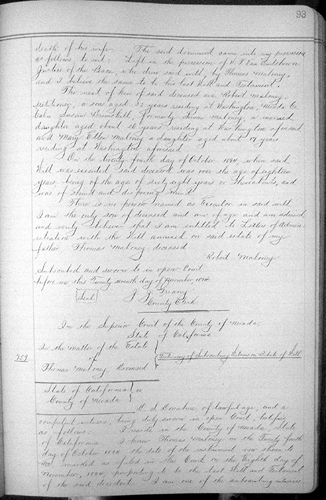 93
death of his wife. The said document came into my possession
as follows to wit: Left in the possession of
Justice of the Peace who drew said will, by Thomas Maloney,
and I believe the same to be his last Will and Testament.
The next of kin of said deceased are Robert Maloney,
petitioner, a son aged 32 years residing at Washington, Nevada Co.
formerly Maloney, a married
daughter aged about years residing at Washington aforesaid
and Mary Ellen Maloney a daughter aged about 17 years
residing at Washington aforesaid.
On the twenty fourth day of October 1880, when said
Will was executed said deceased was over the age of eighteen
years, being of the age of sixty eight years or thereabouts, and
was of
There is no person named as Executor in said will
I am the only son of deceased and am of age and am advised
and verily believe that I am entitled to Letters of Adminis-
tration with the Will annexed on said estate of my
father Thomas Maloney, deceased
Robert Maloney
Subscribed and sworn to in open Court
before me this Twenty seventh day of November, 1880
Seal
County Clerk
In the Superior Court of the County of Nevada
State of California
In the Matter of the Estate
of
Thomas Maloney Deceased
Testimony of Subscribing Witness in Estate of Will
State of California
County of Nevada
of lawful age, and a
competent witness, being duly sworn in open Court, testifies
as follows: I reside in the County of Nevada, State
of California. I knew Thomas Maloney on the Twenty fourth
day of October 1880, the date of the instrument now shown to
me marked as filed in this Court on the Eighth day of
November, 1880, purporting to be the last Will and Testament
of the said decedent. I am one of the subscribing witnesses